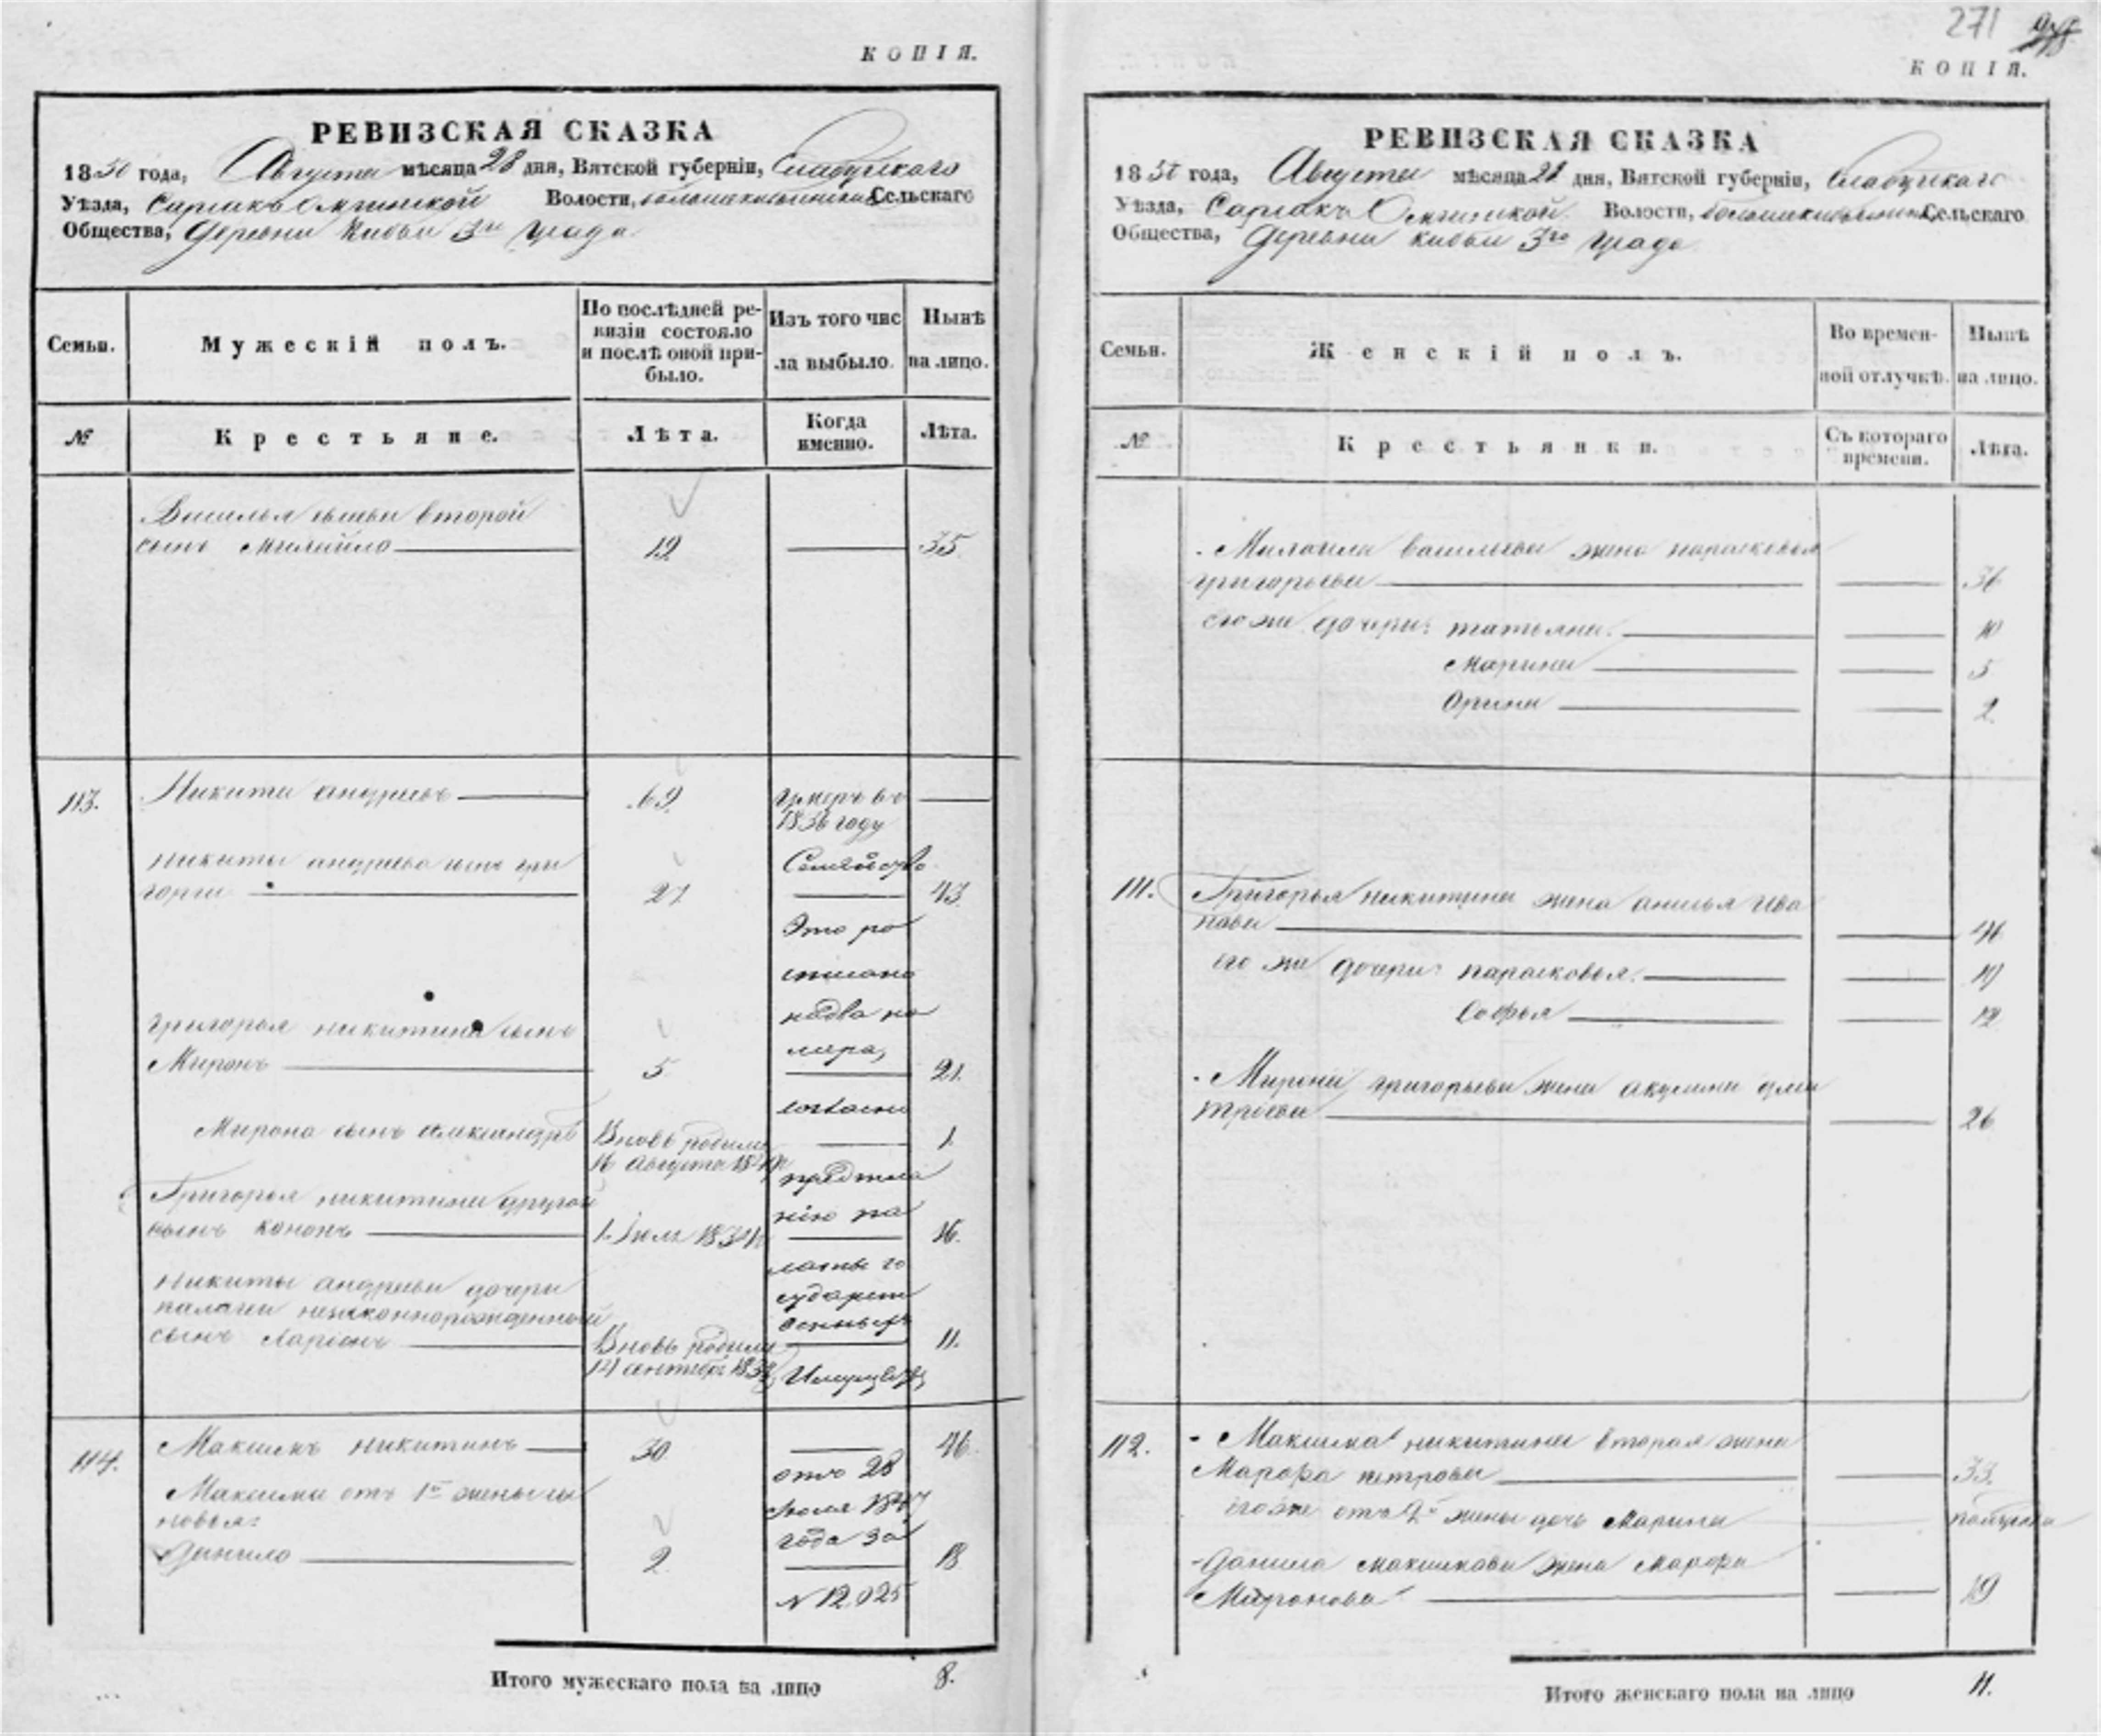 КОПІЯ.
РЕВИЗСКАЯ СКАЗКА
1850 года, Августа мѣсяца 28 дня, Вятской губерніи, Елабужскаго
Уѣзда, Волости, Сельскаго
Общества, Деревни Кибьи 3го
Семьи.
Мужескій полъ.
По послѣдней ре-
визіи состояло
и послѣ оной при-
было.
Изъ того чис
ла выбыло.
Нынѣ
на лицо.
№
Крестьяне.
Лѣта.
Когда
именно.
Лѣта.
Василья второй
сынъ Михайло 19 35.
113. Никита андреевъ 69. умеръ въ
1836 году
Никиты андреева сынъ гри
горей 27 43.
Семейство
Это ро
списано
на два но
мера,
согласно
предписа
нію па
латы го
сударст
венныхъ
Имуществъ
отъ 28
Июля 1847
года за
N 12,925
григорья никитина сынъ
Миронъ 5 21.
Мирона сынъ александръ Вновь родился 1.
16 августа 1849
Григорья никитина другой
сынъ кононъ 1. Июля 1834 16.
Никиты андреева дочери
палагеи незаконнорожденный
сынъ Ларіонъ Вновь родился 11.
14 сентября 1838
114. Максимъ никитинъ 30. 46.
Максима отъ 1й жены сы
новья:
Данило 2. 18
Итого мужескаго пола на лицо 8.
271
КОПІЯ.
РЕВИЗСКАЯ СКАЗКА
1850 года, Августа мѣсяца 28 дня, Вятской губерніи, Елабужскаго
Уѣзда, Волости, Сельскаго
Общества, Деревни Кибьи 3го
Семьи.
Женскій полъ.
Во времен-
ной отлучкѣ.
Нынѣ
на лицо.
№
Крестьянки.
Съ котораго
времени.
Лѣта.
Михаила васильева жена парасковья
григорьева 36
его же дочери: татьяна. 10
Марина 5
Орина 2.
111. Григорья никитина жена анисья ива
нова 46
его же дочери: парасковья. 19
Софья 12
Мирона григорьева жена акулина дми
тріева 26
112. Максима никитина вторая жена
Марфа петрова 33.
его же отъ 2й жены дочь Марина полгода
Данила максимова жена Марфа
Миронова 19
Итого женскаго пола на лицо 11.